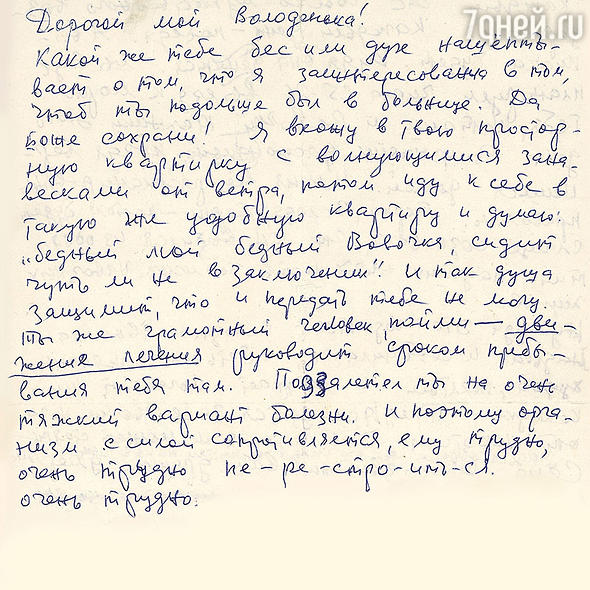 7дней.ru
Дорогой мой Володенька!
Какой же тебе бес или дух нашёпты-
вает о том, что я заинтересована в том,
чтоб ты подольше был в больнице. Да
Боже сохрани! Я вхожу в твою простор-
ную квартирку с волнующимися зана-
весками от ветра, потом иду к себе в
такую же удобную квартиру и думаю:
„бедный мой бедный Вовочка, сидит
чуть ли не в заключении"! И так душа
защимит, что и передать тебе не могу.
Ты же грамотный человек, пойми — дви-
жения лечения руководит сроком пребы-
вания тебя там. залетел ты на очень
тяжкий вариант болезни. И поэтому орга-
низм с силой сопротивляется, ему трудно,
очень трудно пе-ре-стро-ить-ся.
очень трудно.